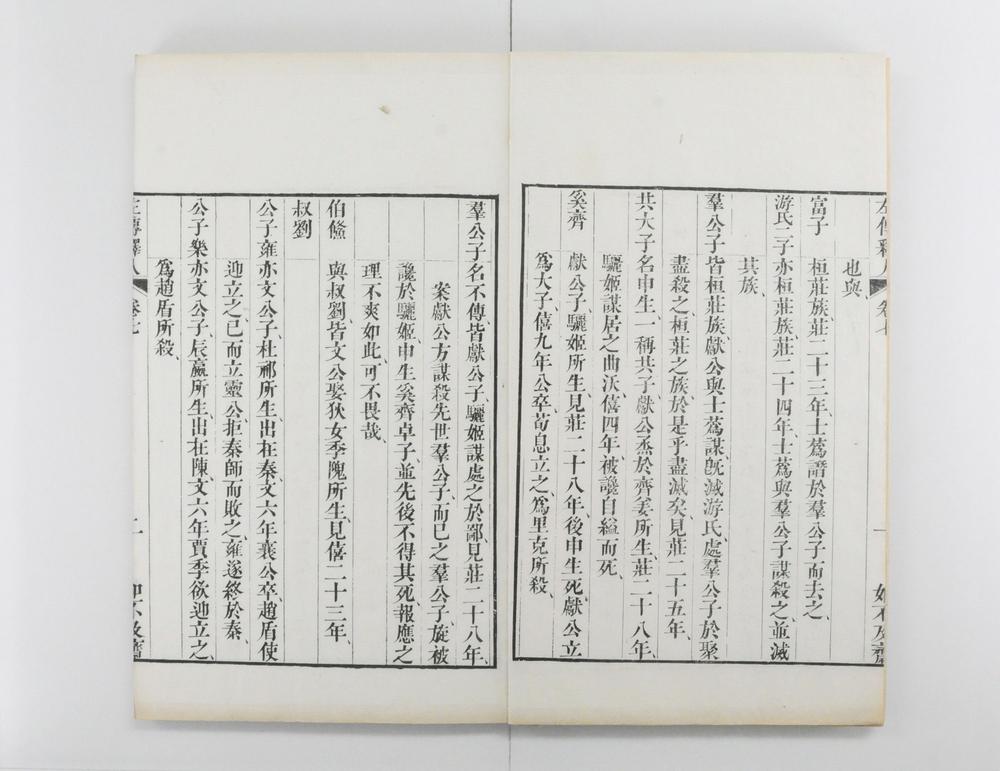 左傳釋人 卷七 一 如不及齋
也與
富子 桓莊族、莊二十三年、士蒍譖於羣公子而去之、
游氏二子亦桓莊族、莊二十四年、士蒍與羣公子謀殺之、並滅
其族、
羣公子皆桓莊族、獻公與士蒍謀、旣滅游氏、處羣公子於聚
盡殺之、桓莊之族、於是乎盡滅矣、見莊二十五年、
共大子名申生、一稱共子、獻公烝於齊姜所生、莊二十八年、
驪姬謀居之曲沃、僖四年、被讒自縊而死、
奚齊 獻公子、驪姬所生、見莊二十八年、後申生死、獻公立
爲大子、僖九年、公卒、荀息立之、爲里克所殺、
羣公子名不傳、皆獻公子、驪姬謀處之於鄙、見莊二十八年、
案獻公方謀殺先世羣公子、而已之羣公子、旋被
讒於驪姬、申生奚齊卓子、並先後不得其死、報應之
理不爽如此、可不畏哉、
伯鯈 與叔劉皆文公娶狄女季隗所生、見僖二十三年、
叔劉
公子雍亦文公子、杜祁所生、出在秦、文六年、襄公卒、趙盾使
迎立之、已而立靈公、拒秦師而敗之、雍遂終於秦、
公子樂亦文公子、辰嬴所生、出在陳、文六年、賈季欲迎立之、
爲趙盾所殺、
左傳釋人 卷七 二 如不及齋